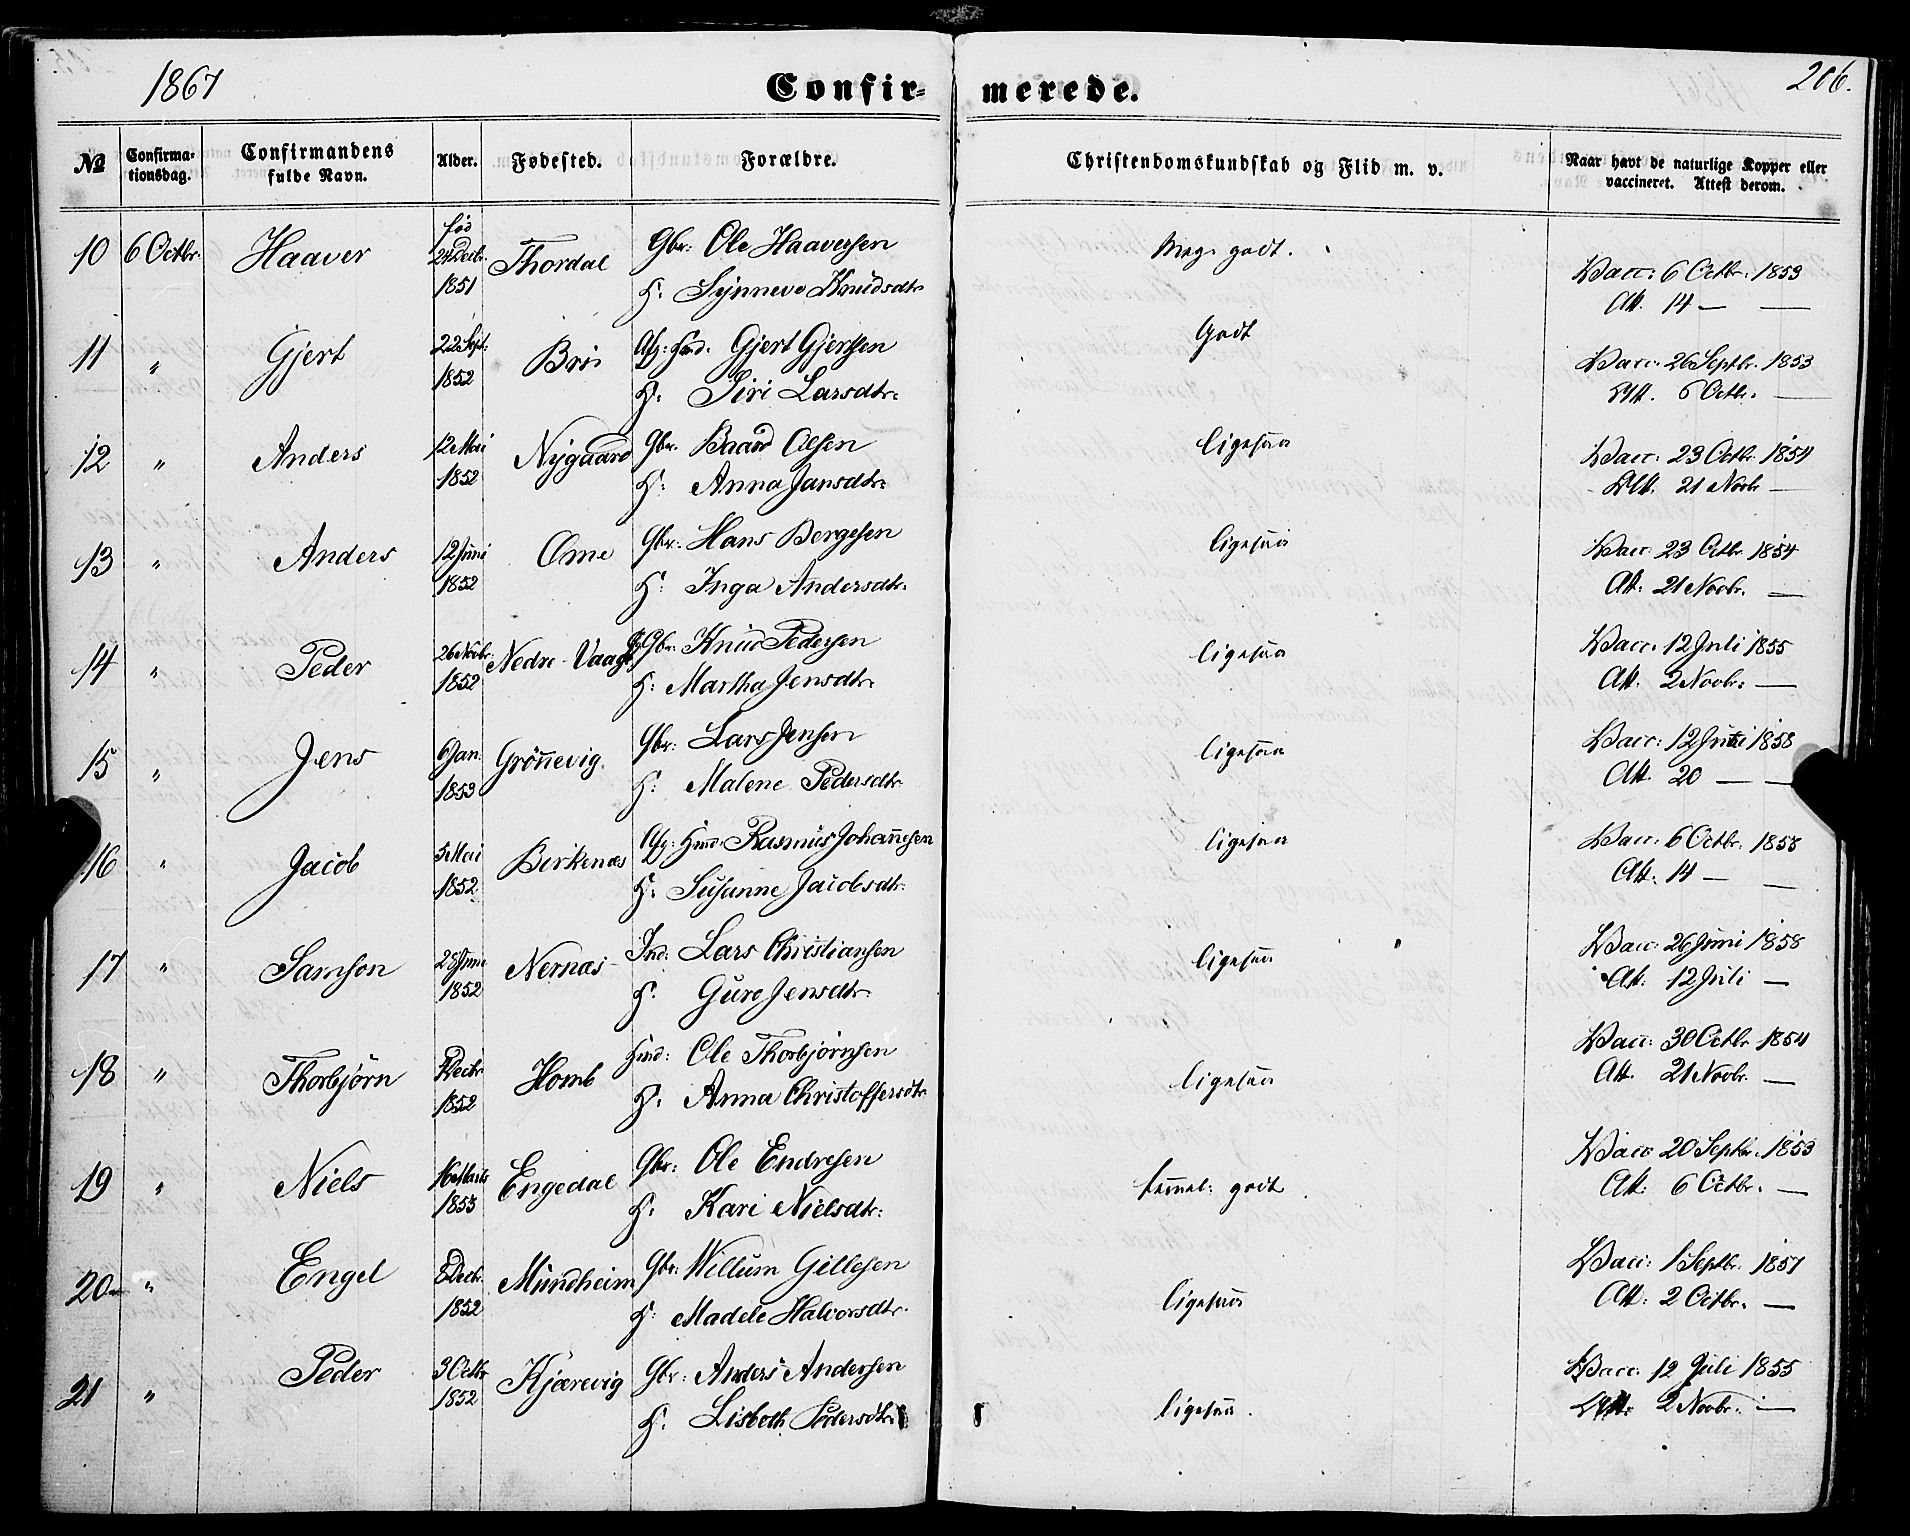 1867
Confir- merede.
206.
No
Confirma-
tionsdag.
Confirmandens
fulde Navn.
Alder.
Fødested.
Forældre.
Christendomskundskab og Flid m. v.
Naar havt de naturlige Kopper eller
vaccineret. Attest derom.
10 6 Octbr. Haaver fød Decbr. 1851 Thordal Gbr: Ole Haaversen
H: Synneve Knudsdtr
Meg. godt.
Vacc: 6 Octbr: 1853
Att. 14 — —
11 " Gjert 22 Sept: 1852 Gjert Gjertsen
H: Siri Larsdtr:
Godt
Vacc: 26 Septbr. 1853
Att. 6 Octbr. —
12 " Anders 12 Mai 1852 Nygaard Gbr. Baard Olsen
H: Anna Jansdtr:
ligesaa
Vacc: 23 Octbr 1854
Att. 21 Novbr —
13 " Anders 12 Juni 1852 Ome Gbr: Hans Bergesen
H: Inga Andersdtr.
ligesaa
Vacc: 23 Octbr 1854
Att: 21 Novbr. —
14 " Peder 26 Novbr. 1852 Nedre Gbr: Knud Pedersen
H: Martha Jensdtr.
ligesaa
Vacc. 12 Juli 1855
Att. 2 Novbr: —
15 " Jens 6 Jan. 1853 Grönnevig. Gbr: Lars Jensen
H: Malene Pedersdtr.
ligesaa
Vacc: 12 1858
Att. 20 — —
16 " Jacob 5 Mai 1852. Birkenæs Rasmus Johannesen
H: Susanne Jacobsdtr.
ligesaa
Vacc: 6 Octbr: 1858
Att: 14 — —
17 " Samson 28 Juni 1852 Nernæs Ind: Lars Christiansen
H: Guro Jensdtr.
ligesaa
Vacc: 26 Juni 1858
Att: 12 Juli —
18 " Thorbjörn Decbr 1852 Homb Ole Thorbjörnsen
H: Anna Christoffersdtr
ligesaa
Vacc: 30 Octbr 1854
Att. 21 Novbr. —
19 " Niels 16 Marts 1853 Engedal Gbr: Ole Endresen
H: Kari Nielsdtr:
temmel: godt
Vacc 20 Septbr. 1853
Att: 6 Octbr. —
20 " Engel Decbr. 1852 Mundheim Gbr: Willum Gillesen
H: Madele Halvorsdtr.
ligesaa
Vacc: 1 Septbr. 1857
Att: 2 Octbr. —
21 " Peder 3 Octbr 1852 Kjærevig Gbr: Anders Andersen
H: Lisbeth Pedersdtr:
ligesaa.
Vacc: 12 Juli 1855
Att: 2 Novbr: —